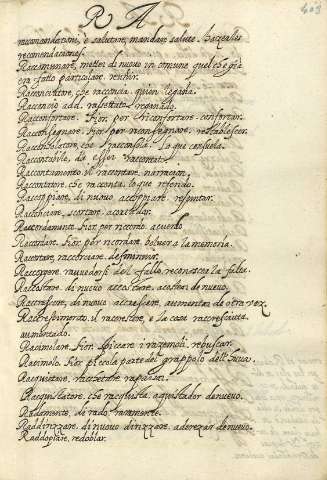 R A
403
recomendationi, e salutare, mandare salute. hazeales
recomendaciones.
Raccommunare, metter di nuovo in comune quel che già
era fatto particulare, reunir.
Racconciatore, che racconcia, quien repara.
Racconcio add. rassettato, reparado.
Racconfortare. Fior. per riconfortare. confortar.
Racconsegnare. Fior. per riconsegnare, restablescer.
Racconsolatore, che racconsola. lo que consuela.
Raccontabile, da esser raccontato.
Raccontamento il raccontare, narracion.
Raccontatore, che racconta, lo que refiere.
Raccoppiare, di nuovo accoppiare,
Raccorciare, scortare, acortar.
Raccordamento. Fior. per ricordo, acuerdo.
Raccordare. Fior. per ricordare, bolver a la memoria.
Raccortare, raccorciare, disminuir.
Raccorgere ravvedersi del fallo, reconoscer la falta.
Raccostare di nuovo accostare, acostar de nuevo.
Raccrescere, di nuovo accrescere, aumentar de otra vez.
Raccrescimento, il raccrescere, e la cosa raccresciuta,
aumentado.
Racimolare. Fior. spiccare i racemoli, rebuscar.
Racimolo. Fior. piccola parte del grappolo dell'uva.
Racquietare, racchetare
Racquistatore, che racquista, aquistador de nuevo.
Radamente, di rado, raramente.
Raddirizzare, di nuovo dirizzare, aderezar de nuevo.
Raddoppiare, redoblar.